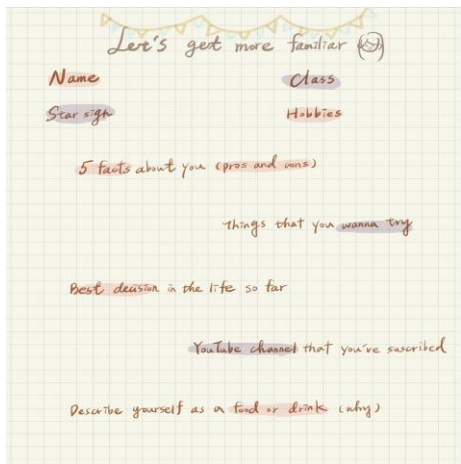 Let's get more familiar
Name Class
Star sign Hobbies
5 facts about you (pros and cons)
Things that you wanna try
Best decision in the life so far
YouTube channel that you've suscribed
Describe yourself as a food or drink (why)